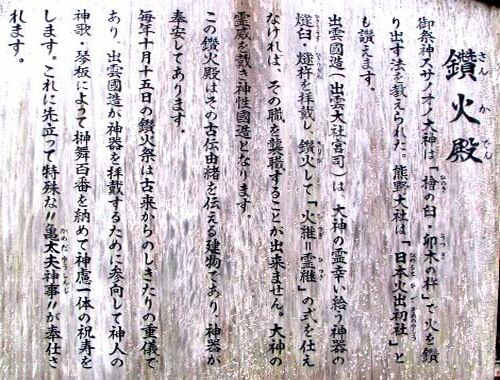 鑽火殿
さんかでん
御祭神スサノオノ大神は、「檜の臼・卯木の杵」で火を鑽
り出す法を教えられた。熊野大社は「日本火出初社」と
も讃えます。
出雲國造(出雲大社宮司)は、大神の霊幸い拾う神器の
燧臼・燧杵を拝戴し、鑽火して「火継=霊継」の式を仕え
なければ、その職を襲職することが出来ません。大神の
霊威を戴き神性國造となります。
この鑽火殿はその古伝由緒を伝える建物であり、神器が
奉安してあります。
毎年十月十五日の鑽火祭は古来からのしきたりの重儀で
あり、出雲國造が神器を拝戴するために参向して神人の
神歌・琴板によって榊舞百番を納めて神慮一体の祝寿を
します。これに先立って特殊な〃亀太夫神事〃が奉仕さ
れます。